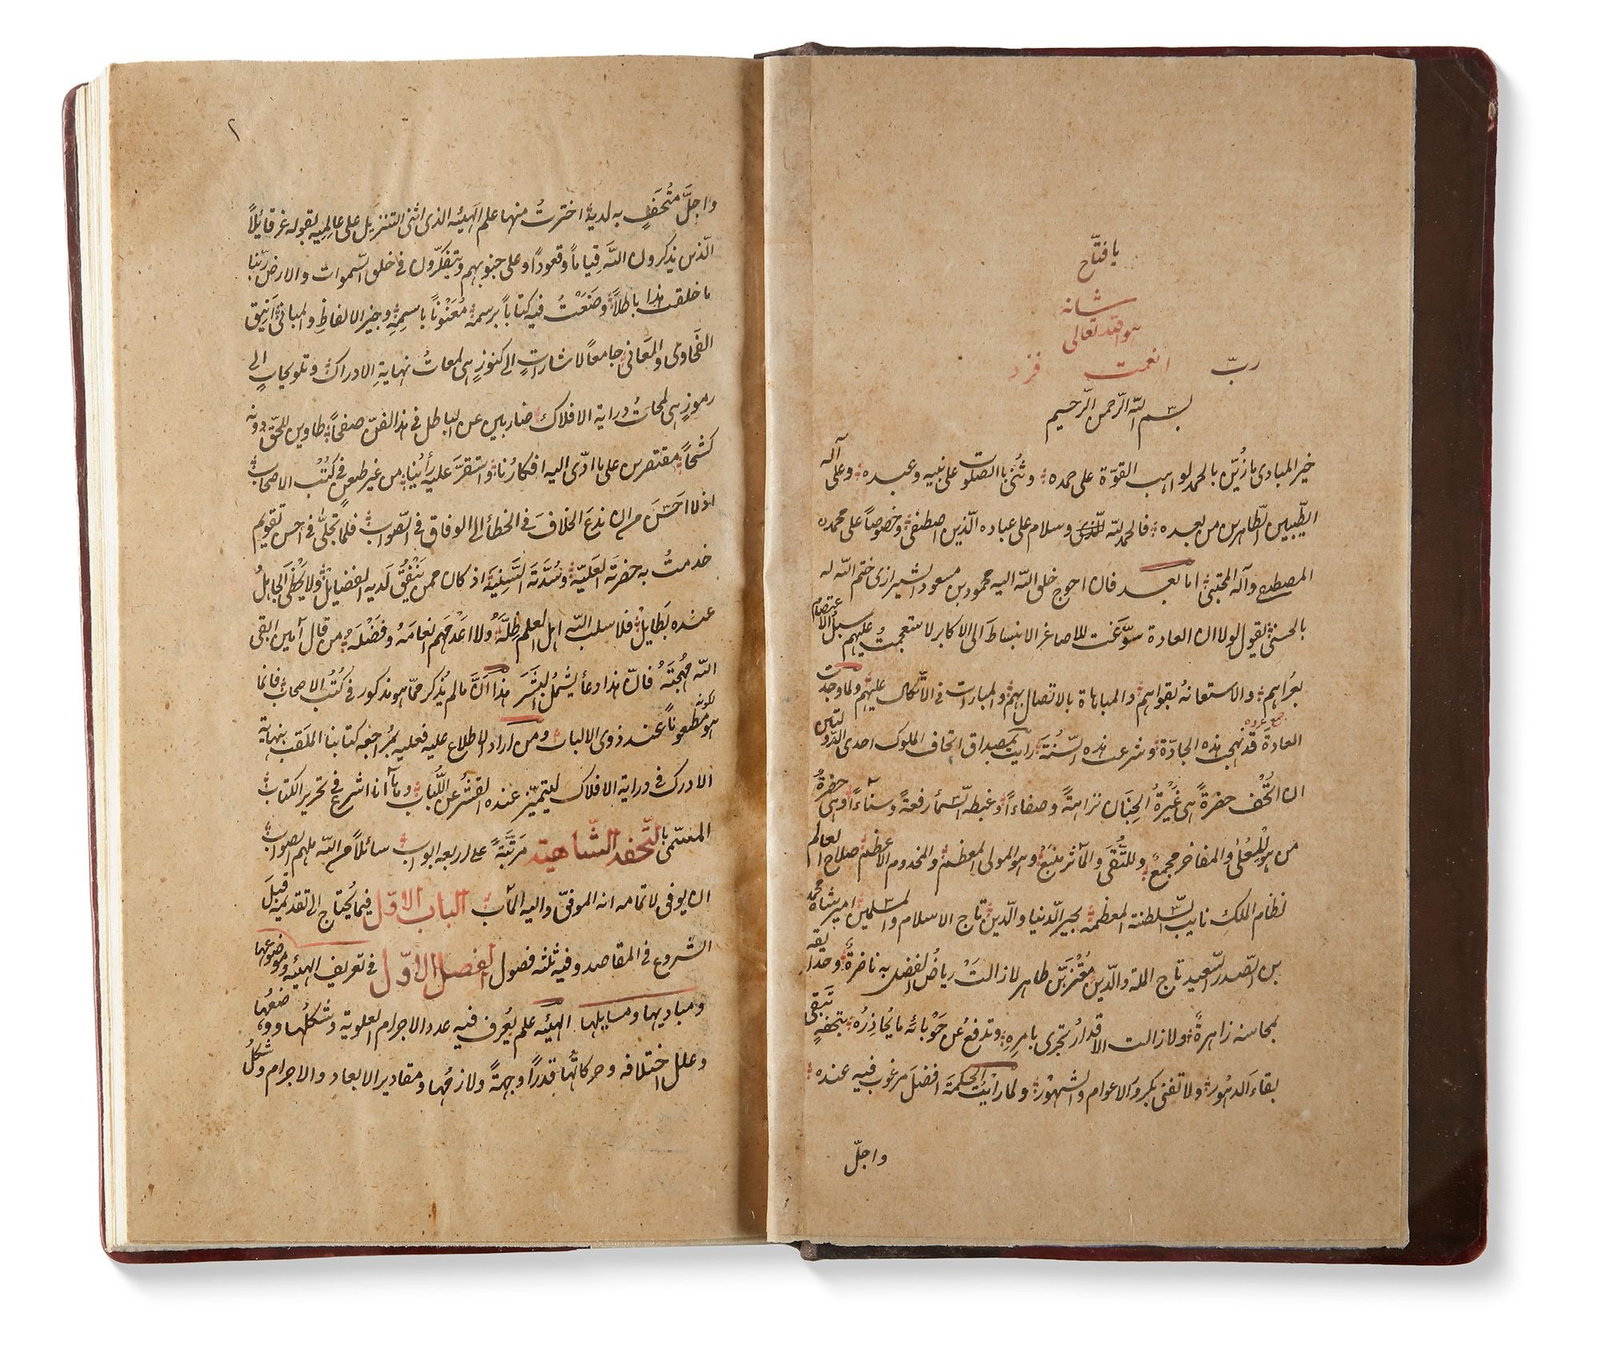 يا فتّاح
شانه
هو الله تعالى
ربّ انعمت فزد
بسم الله الرّحمن الرّحيم
خير المبادى ما زُيّن بالحمد لواهب القوّة على حمده و ثُنّى بالصّلوت على نبيه و عبده و على آله
الطّيبين الطّاهرين من بعده فالحمد لله و سلام على عباده الّذين اصطفى و خصوصاً على محمّده
المصطفى و آله المجتبى اما بعد فان احوج خلق اللّه اليه محمود بن مسعود الشيرازى ختم اللّه له
بالحسنى يقول لولا ان العادة سوّغت للاصاغر الانبساط الى الاكابر لاستعجمتُ عليهم سبل الاعتصام
بعُراهم و الاستعانةُ بقواهم و المباهاة بالاتصال بهم و المبارات فى الاتّكال عليهم و لما وجدت
العادة قد نهجت هذه الجادّة و شرعت هذه السّنة رايت بمصداق اتحاف الملوك احدى
ان اتُحف حضرةً هى غَيْرةُ الجِنَان نزاهةً و صفاءاً و غبطه السّماء رفعةً و سناءاً و هى حضرةُ
من هو للمُعْلى و المفاخر مجمعٌ و للتُّقى و المآثر منبعٌ و هو المولى المعظم و المخدوم الاعظم صلاح العالم
نظام الملك نايب السلطنة المعظمة مجير الدّنيا و الدّين تاج الاسلام و المسلمين اميرشاه محمد
بن الصّدر السّعيد تاج الملة و الدّين معتز بن طاهر لا زالتْ رياضُ الفضل به ناضرةً و حدائقه
بمحاسنه زاهرةً و لا زالت الاقدارُ تجرى بامره و تدفع عن حَوْبائه ما يُحاذِرُه بتحفةٍ تبقى
بقاءَ الدهور و لا تفنى بكرور الاعوام و الشهور و لما رايتُ الحكمة افضلَ مرغوب فيه عنده
و اجلّ
٢
و اجلَّ مُتْحَفٍ به لديه اخترتُ منها علم الهيئه الذى اثنى التنزيل على عالميه بقوله عز قايلاً
الّذين يذكرون اللّهَ قياماً و قعوداً و على جنوبهم و يتفكّرون فى خلق السّموات و الارض ربّنا
ما خلقت هذا باطلاً و صنَعْتُ فيه كتاباً برسمه مُعَنْوناً باسمِه وجيز الالفاظِ و المبانى انيق
الفحاوى و المعانى جامعاً لاشاراتٍ الى كنوزٍ هى لمعاتُ نهايةِ الادراك و تلويحاتٍ الى
رموزٍ هى لمحاتُ دراية الافلاك ضاربين عن الباطل فى هذا الفنّ صفحاً طاوين للحقّ دونه
كَشْحاً مقتصرين على ما ادّى اليه افكارُنا و استقرَّ عليه رأْيُنا من غير طعنٍ فى كُتُب الاصحاب
اذ لا احسَنَ من ان ندعَ الخلافَ فى الخطأ الى الوفاق فى الصّواب فلما تجلّى فى احسن تقويم
خدمتُ به حضرتَه العليّة و سُدّتَه السّنيّة اذ كان ممن يَنْفُقُ لَديه الفضايل و لا يحظى الجاهلُ
عنده بطايلٍ فلا سلب اللّه اهل العلم ظِلّهُ و لا اعدمهم انعامَهُ و فَضْلَهُ من قال آمين ابقى
اللّه مُهْجَتَهُ فانّ هذا دعاءٌ يشملُ البشَرَ هذا انّ ما لم يُذكر ممّا هو مذكور فى كُتُب الاصحاب فانما
هو لكونه مطعوناً عند ذوى الالباب و من اراد الاطلاع عليه فعليه بمراجعه كتابنا الملقب بنهاية
الادرك فى دراية الافلاك ليتميّز عنده القشرُ عن اللُّباب و ها انا اشرع فى تحرير الكتاب
المسمّى بالتّحفه الشّاهيّه مرَتَّبَةً على اربعه ابواب سائلاً من اللّه ملهم الصواب
ان يوفى لاتمامه انه الموفّق و اليه المآب الباب الاوّل فيما يحُتاج الى تقديمه قبلَ
الشروع فى المقاصد و فيه ثلثه فصول الفصل الاوّل فى تعريف الهيئه و موضوعها
و مباديها و مسايلها الهيئه علم يُعرف فيه عدد الاجرام العلوية و شكلُها و وضعُها
و علل اختلافه و حركاتُها قدراً و جهةً و لازمُها و مقادير الابعاد و الاجرام و شكلُ